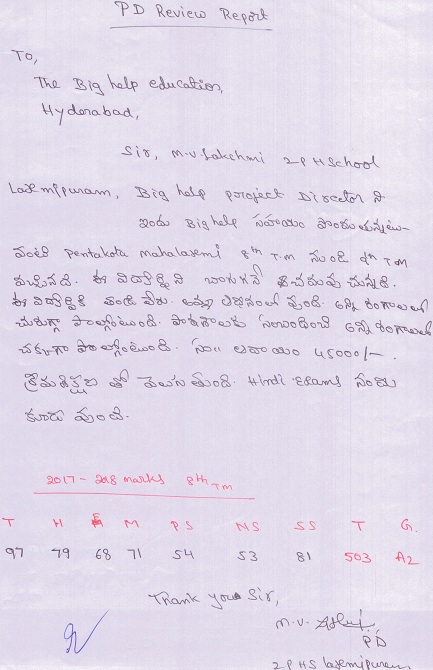 PD Review Report
To,
The Big help education,
Hyderabad,
Sir, M.V Lakshmi Z P H School
Laxmipuram, Big help project Director ని
ఇందు Big help సహాయం పొందుతున్నటు-
వంటి pentakota mahalaxmi 8th T.M నుండి 9th T.M
వచ్చినది. ఈ విద్యార్థిని బాగుగనే చదువు చున్నది.
ఈ విద్యార్థికి తండ్రి లేరు. అమ్మ వుంది. అన్ని రంగాలలో
చురుగ్గా పాల్గొంటుంది. పాఠశాలకు సంబందించి అన్ని రంగాలలో
చక్కగా పాల్గొంటుంది. సం॥ ఆదాయం 45000/-.
క్రమశిక్షణ తో మెలుగుతుంది. Hindi Exams నందు
కూడా వుంది.
2017 - 2018 marks 8th T.M
T H E M PS NS SS T G.
97 79 68 71 54 53 81 503 A2
Thank you Sir,
M.V.
PD
Z P H S laxmipuram